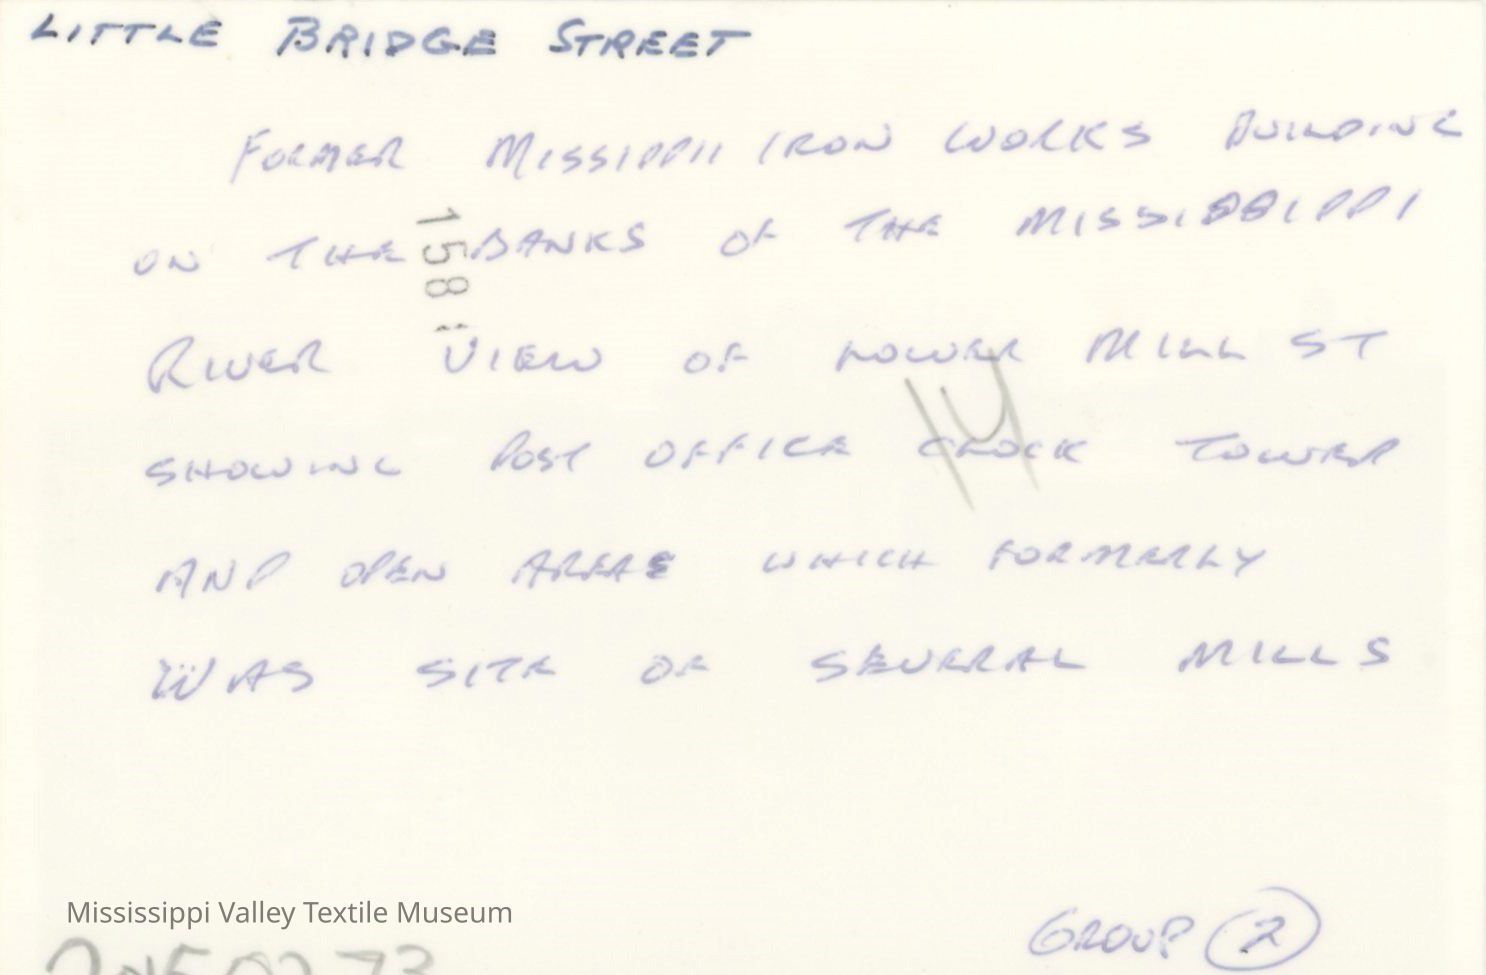 LITTLE BRIDGE STREET
FORMER MISSIPPII IRON WORKS BUILDING
ON THE BANKS OF THE MISSISSIPPI
RIVER VIEW OF LOWER MILL ST
SHOWING POST OFFICE CLOCK TOWER
AND OPEN AREAS WHICH FORMERLY
WAS SITE OF SEVERAL MILLS
158
14
Mississippi Valley Textile Museum
GROUP 2